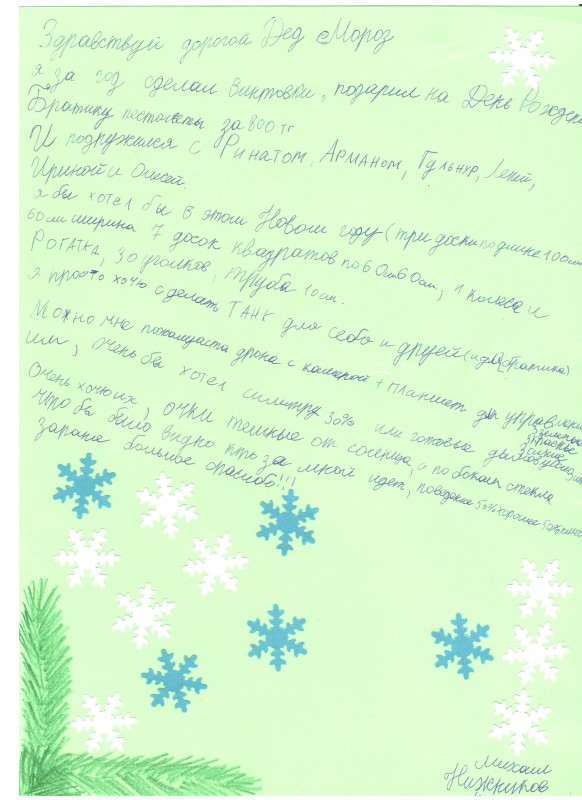 Здравствуй дорогой Дед Мороз
я за год сделал винтовки, подарил на День Рожден
Братику пестолеты за 800 тг
И подружился с Ринатом, Арманом, Гульнур, Леной,
Ириной и Олесей.
я бы хотел бы в этом Новом году (три доски по длине 100см
60см ширина 7 досок квадратов по 60см60см, 4 колеса и
Рогатка, 30 уголков, труба 10см.
я просто хочю сделать ТАНК для себя и друзей (и для братика)
Можно мне пожалуйста дрона с камерой + планшет для управления
им, очень бы хотел силитру 30% или готовые дымовушки
3 зеленые
3 красные
3 синие
Очень хочю их, очки темные от сонца, а по бокам стекла
что бы было видно кто за мной идет, поведение 50% хорошее 50%
зарание большое спасибо!!!
Михаил
Нижников